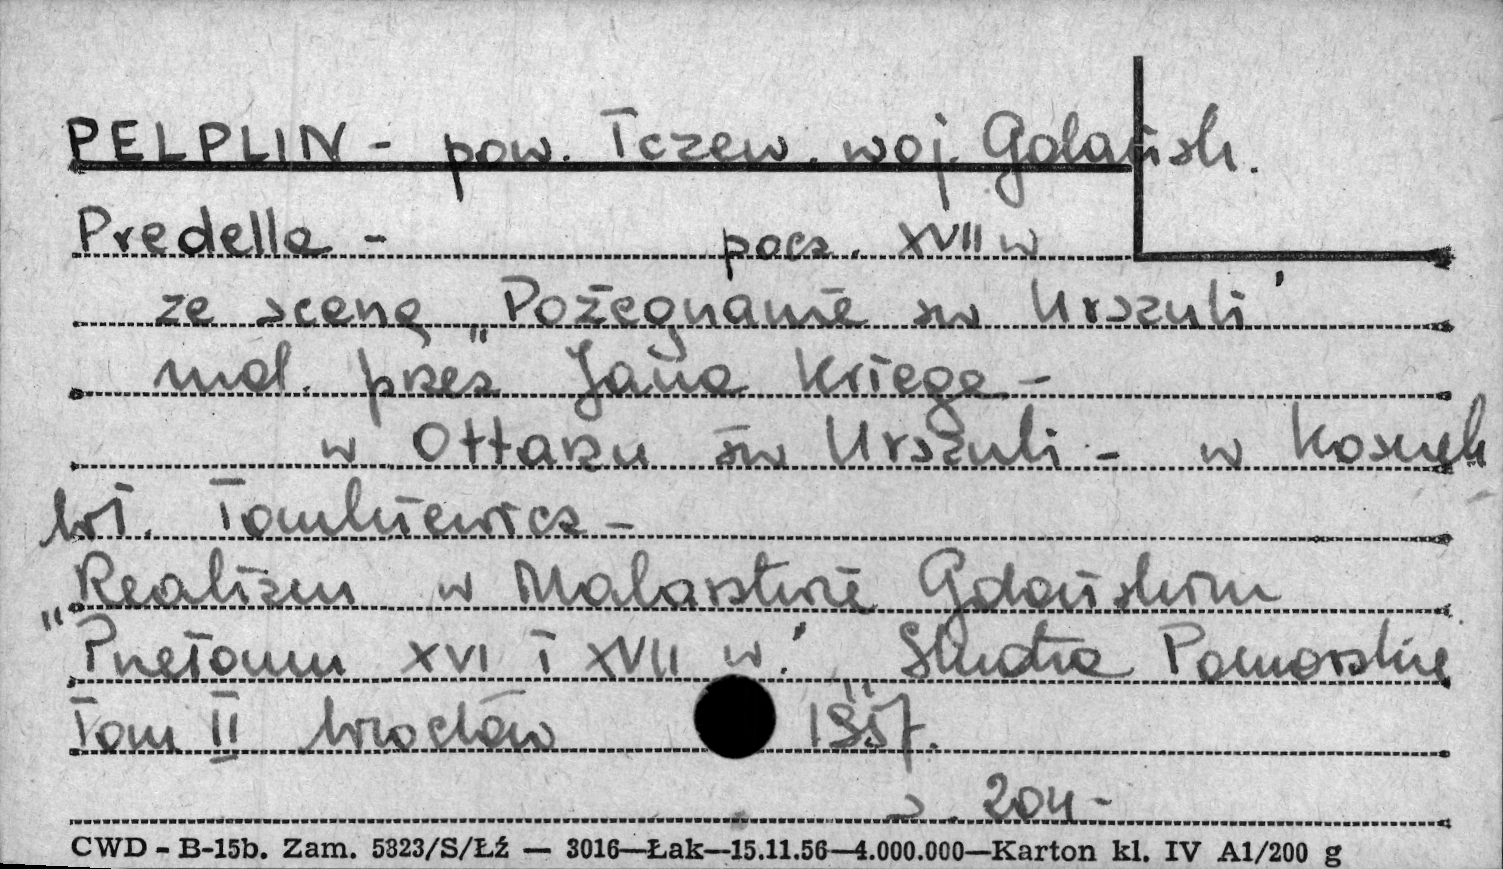 PELPLIN - pow. Tczew. woj. Gdańsk.
Predella - pocz. XVII w
ze sceną „Pożegnanie św Urszuli"
mal. przez Jana Kriega -
w Ołtarzu św Urszuli - w Kościele
Wł. Tomkiewicz -
Realizm w Malarstwie Gdańskim
"Przełomu XVI i XVII w." Studia Pomorskie
Tom II Wrocław 1957.
s. 204 -
CWD - B-15b. Zam. 5323/S/Łź — 3016—Łak—15.11.56—4.000.000—Karton kl. IV A1/200 g